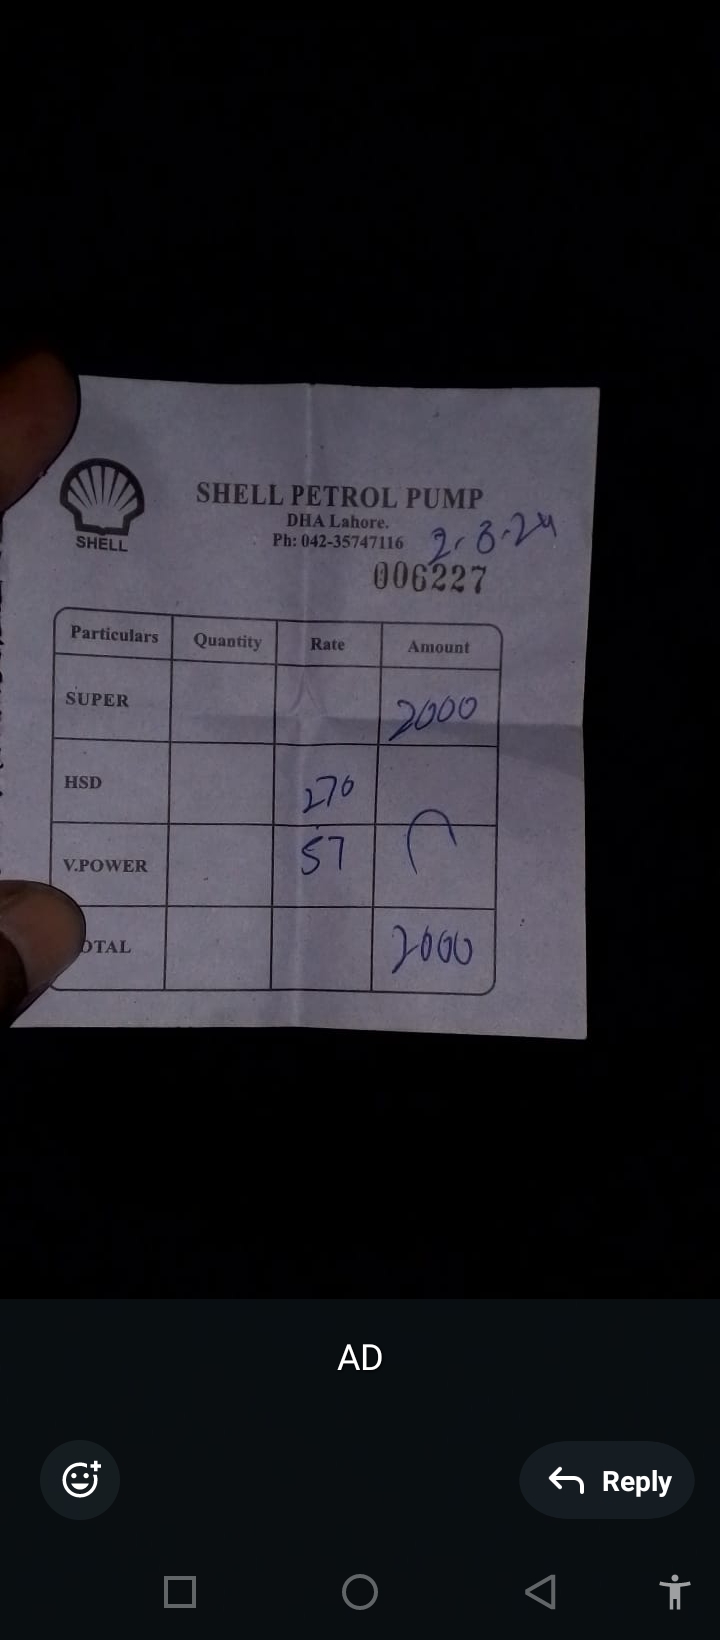 SHELL
SHELL PETROL PUMP
DHA Lahore.
Ph: 042-35747116
2.8.24
006227
Particulars Quantity Rate Amount
SUPER 2000
HSD 270
V.POWER 57
OTAL 2000
AD
Reply